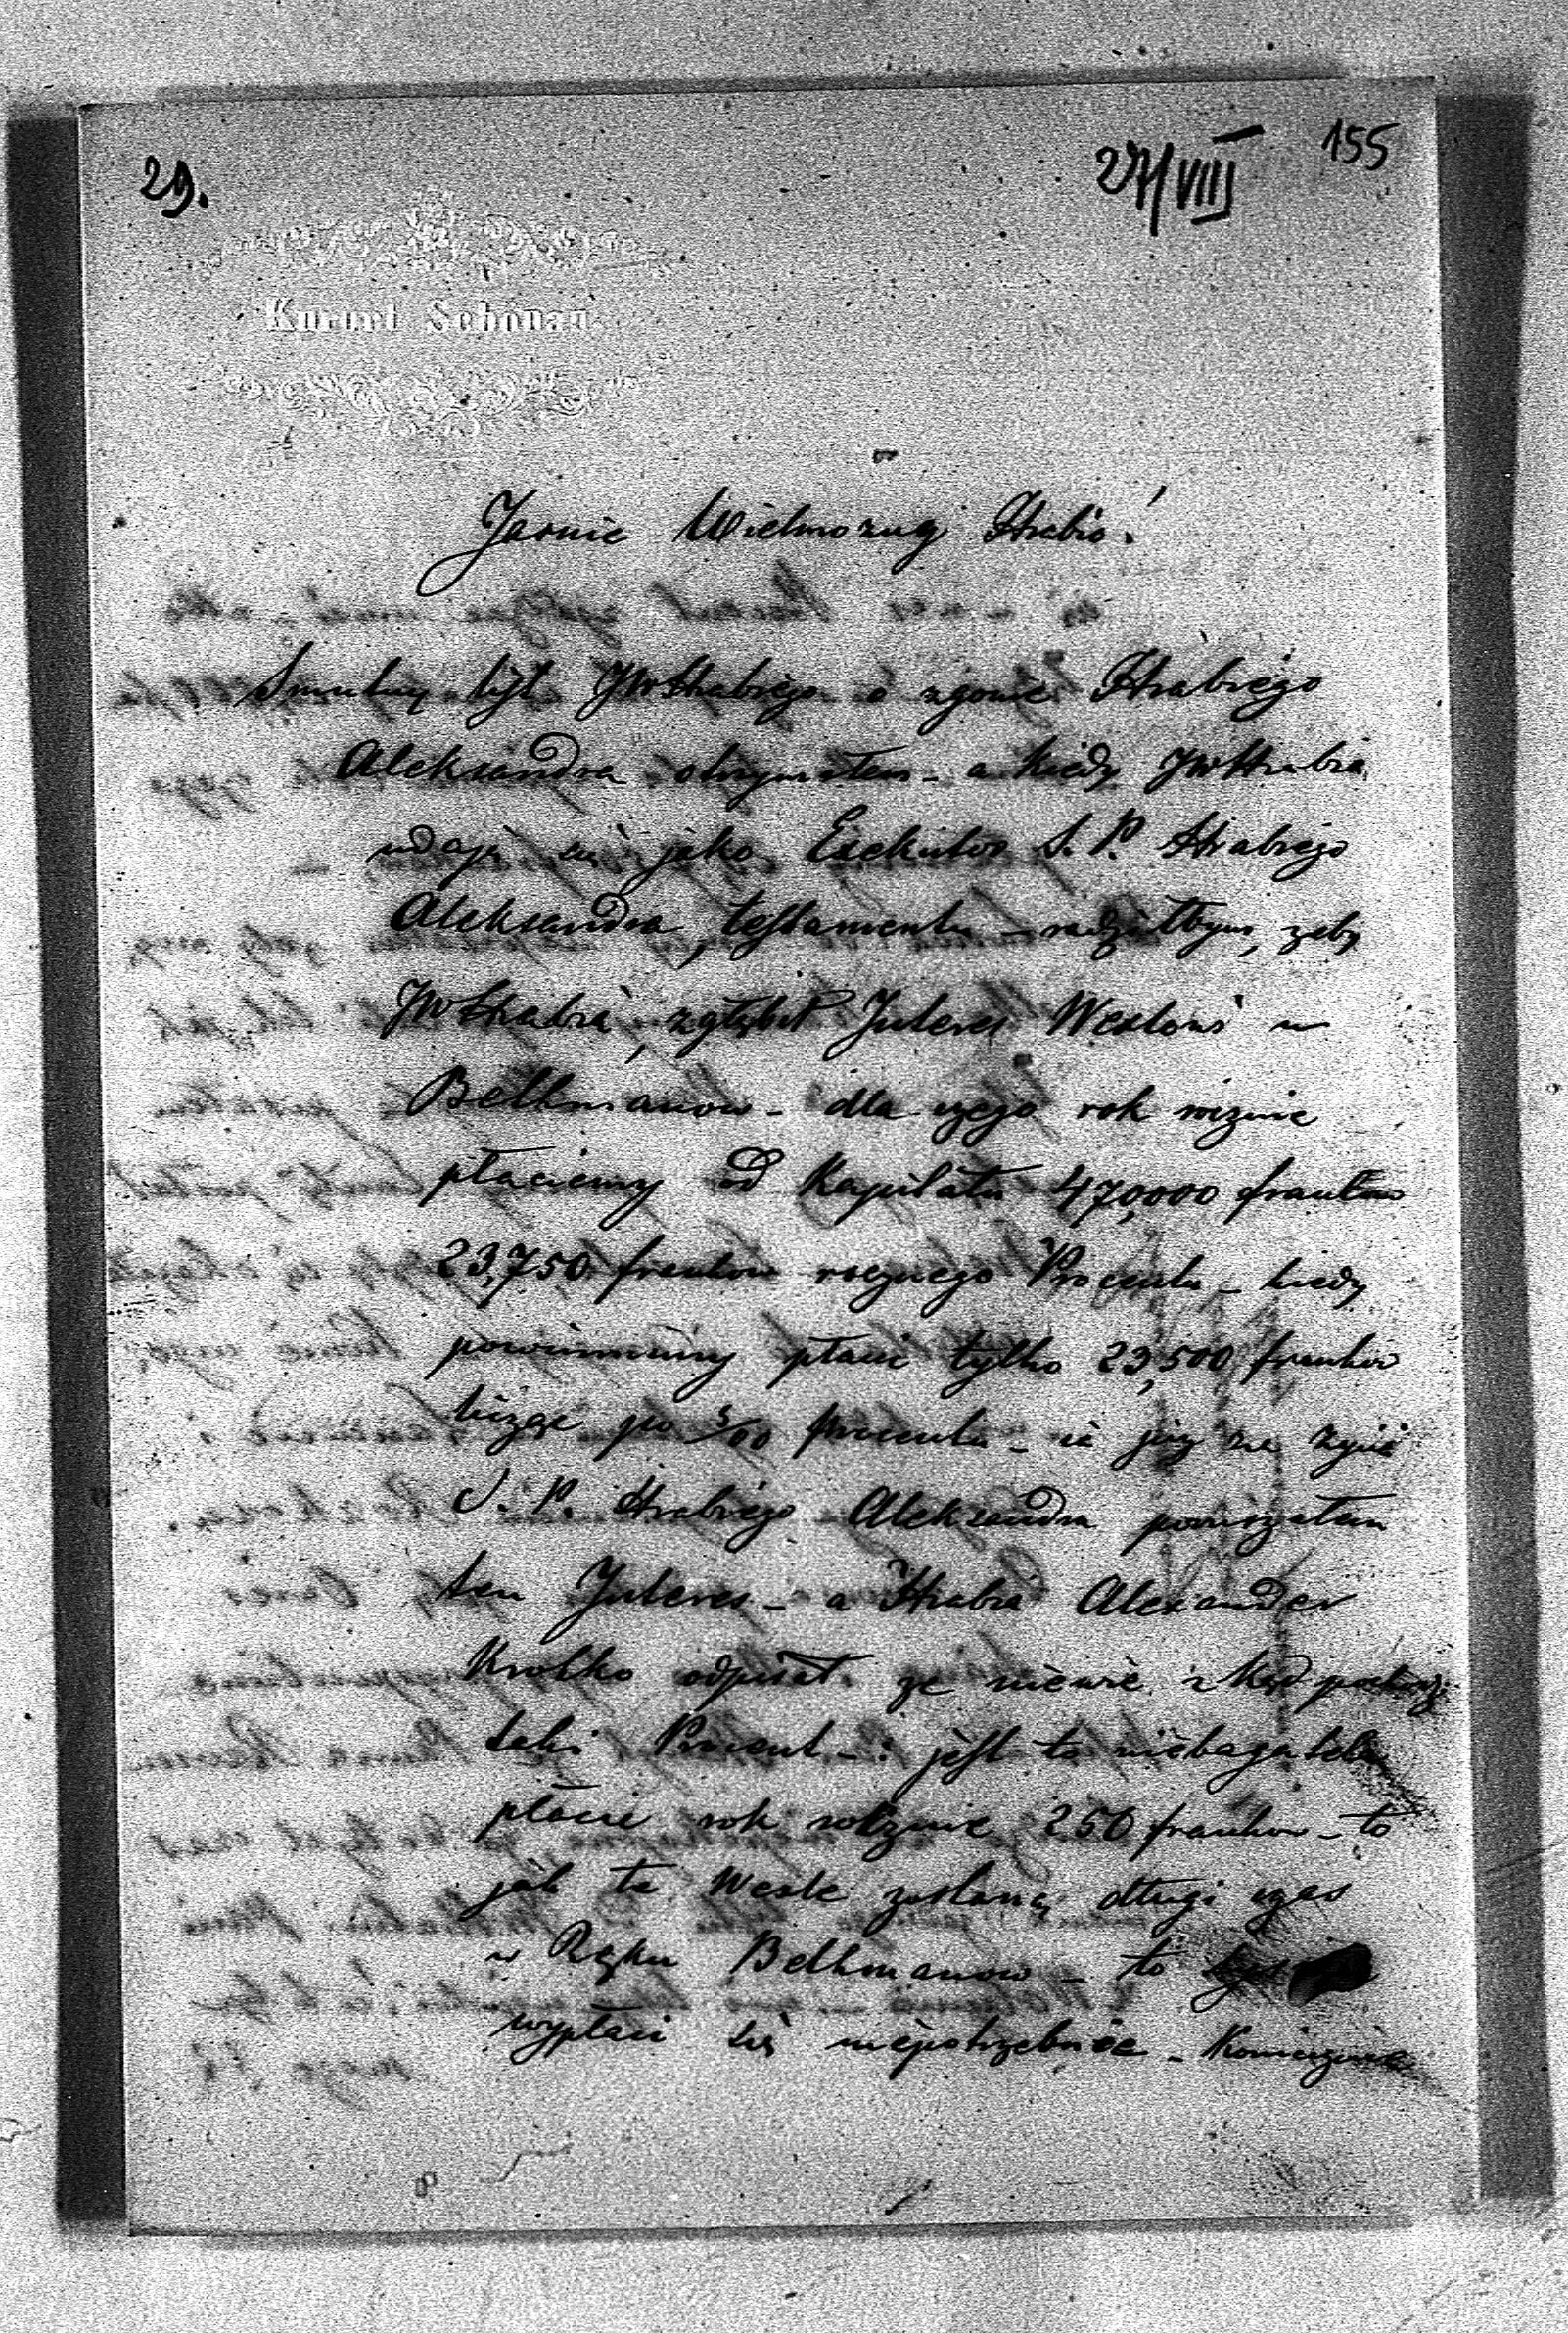 29.
27/VIII
155
Kurort Schönau
Jasnie Wielmozny Hrabio!
Smutny list JWHrabiego o zgonie Hrabiego
Aleksandra otrzymałem - a kiedy JWHrabia
udaje się jako Exekutor S. P. Hrabiego
Aleksandra, testamentu - radziłbym, zeby
JWHrabia, zgłębił Interes Weksloni w
Bethmanow - dla czego rok rocznie
płaciemy od Kapitału 470,000 frankow
23,750 frankow rocznego Procentu - kiedy
powinniśmy płacic tylko 23,500 frankow
licząc po 5/00 procentu - ia już za zyciá
S. P. Hrabiego Aleksandra poruszałem
ten Interes - a Hrabia Alexander
Krotko odpisał ze niewie z kąd pochodzi
taki Procent - i jest to niebagatela
płacic rok rocznie 250 frankow - to
jak te Wexle zostaną długi czas
w Ręku Bethmanow - to
wypłaci się niepotrzebnie -